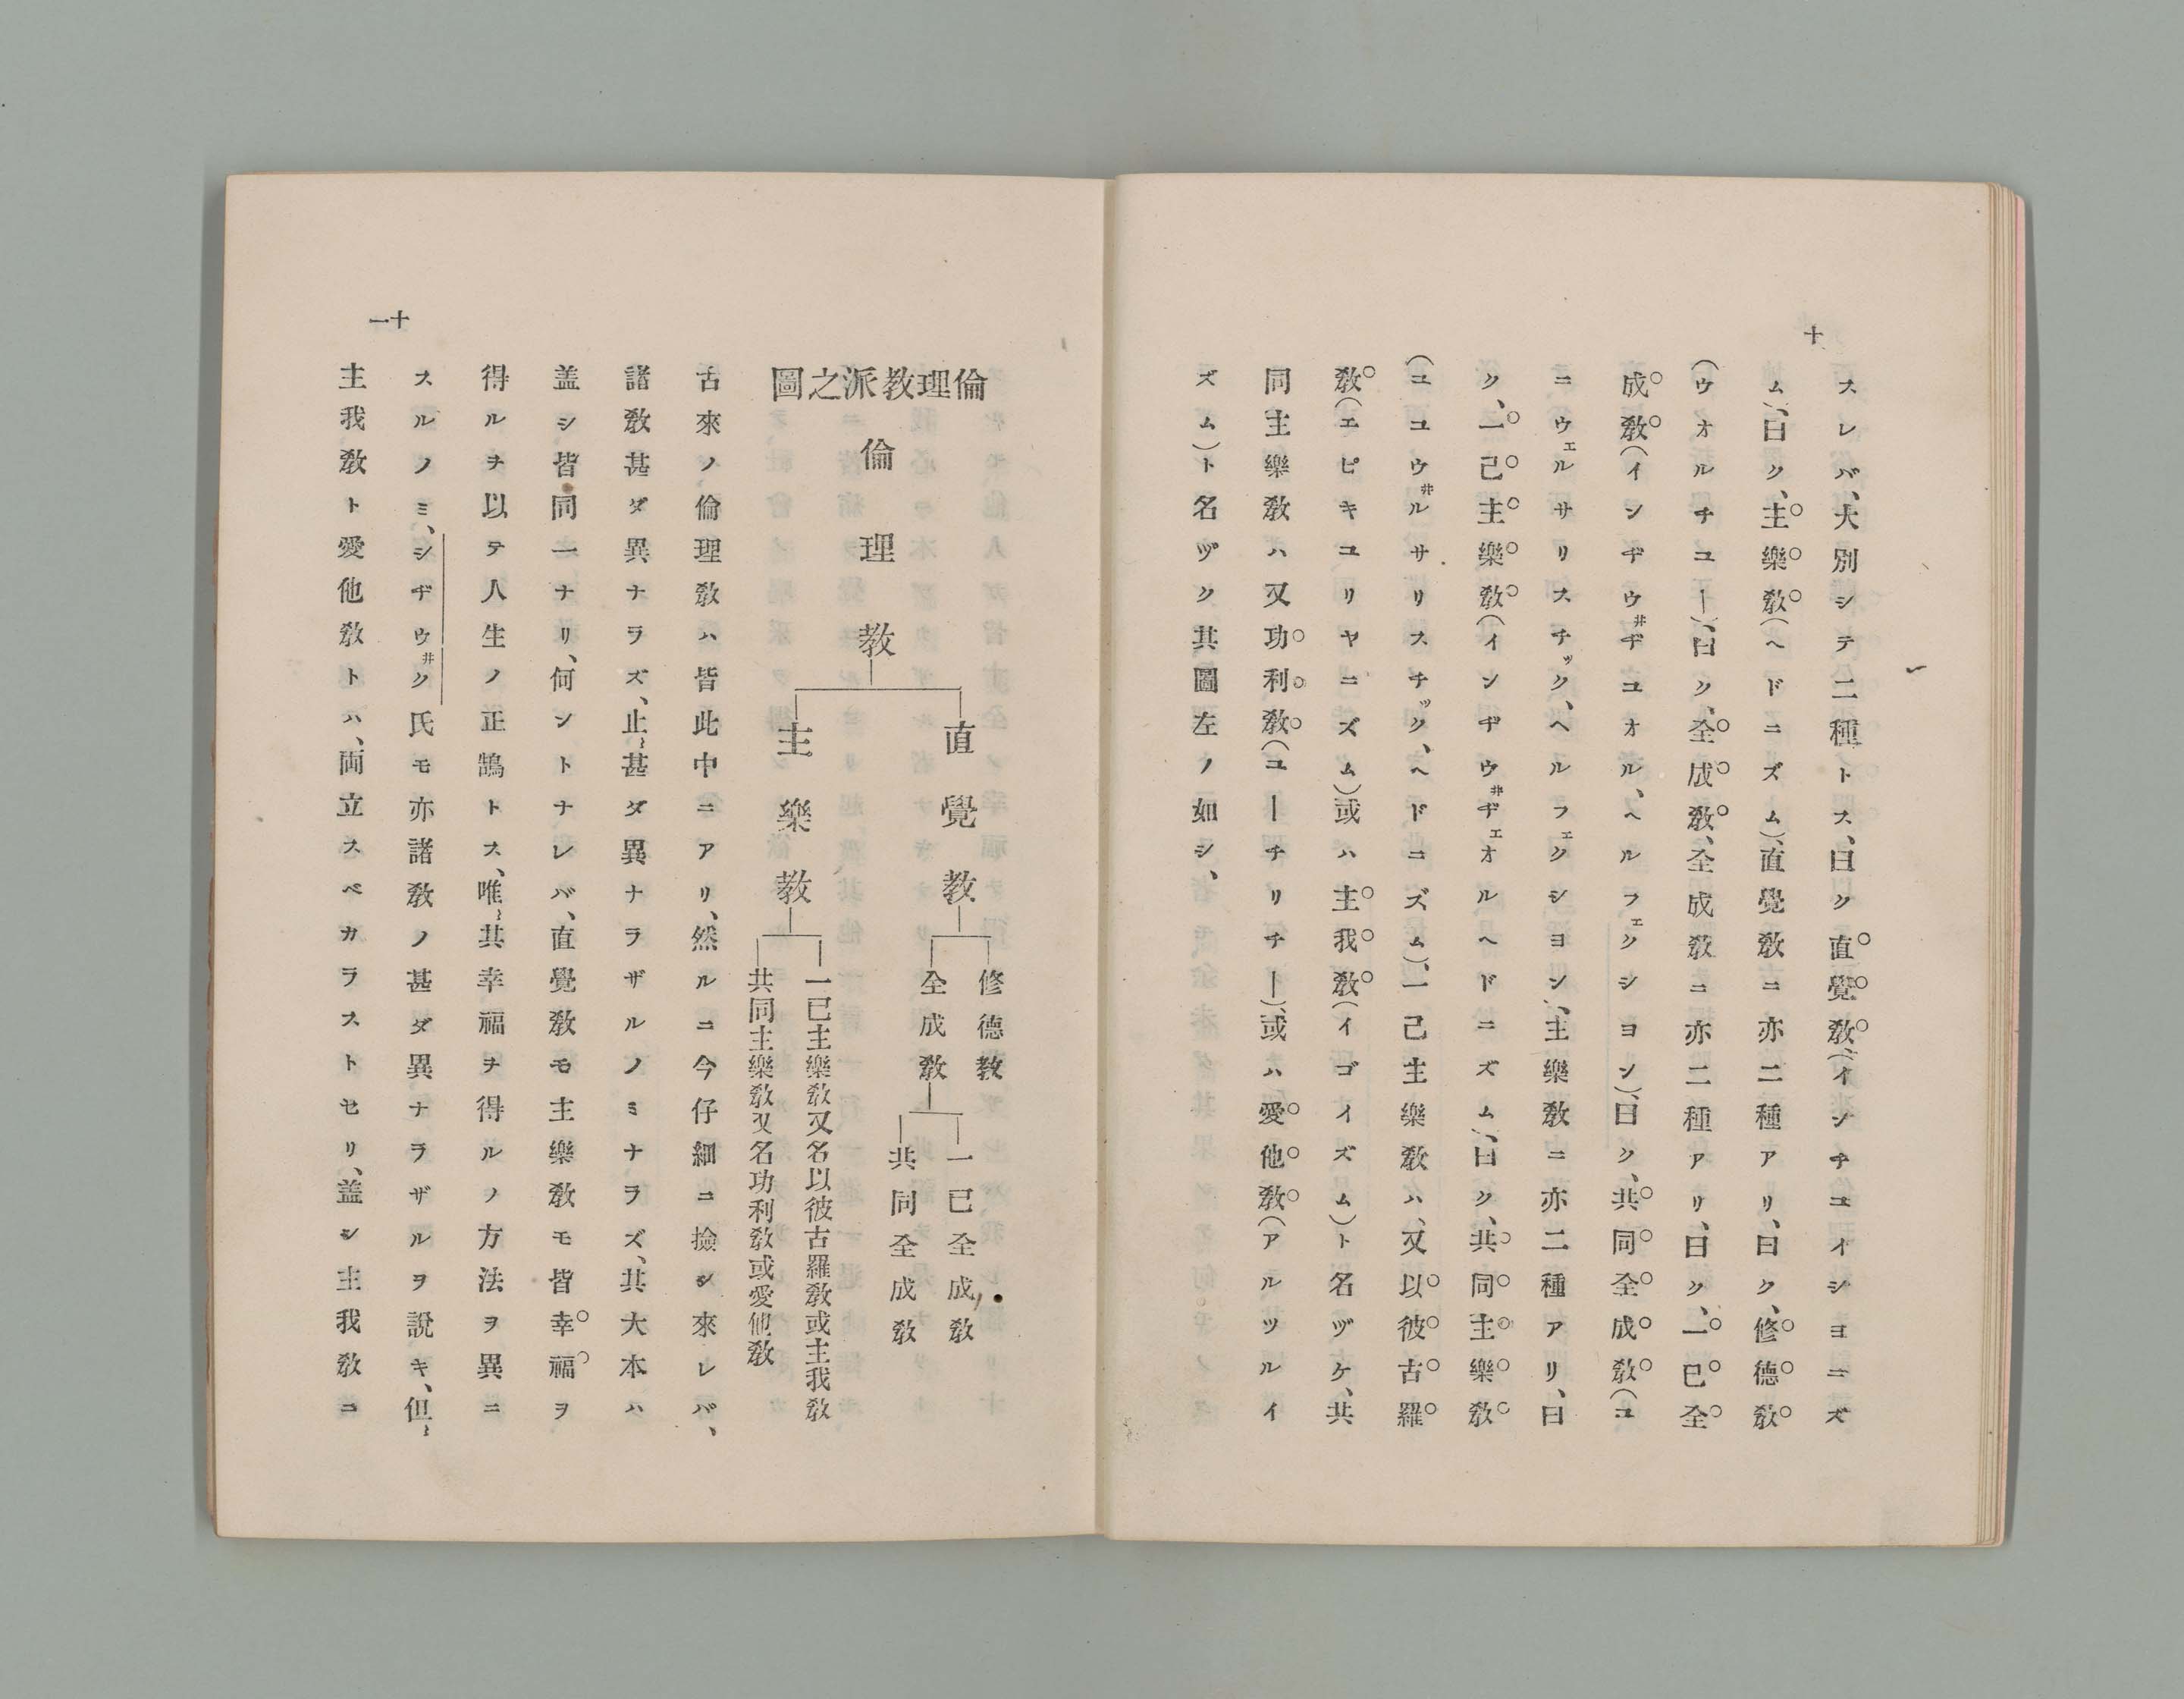 十
スレバ、大別シテ二種トス、曰ク直覺敎(インチユイシヨニズ
ム)、曰ク、主樂敎(ヘドニズム)直覺敎ニ亦二種アリ、曰ク、修德敎
(ウオルチユー)、曰ク、全成敎、全成敎ニ亦二種アリ、曰ク、一己全
成敎(インヂウ井ヂユオル、ヘルフエクシヨン)、曰ク、共同全成敎(ユ
ニウエルサリスチツク、ヘルフエクシヨン)、主樂敎ニ亦二種アリ、曰
ク、一己主樂敎(インヂウ井ヂエオルヘドニズム)、曰ク、共同主樂敎
(ユユウ井ルサリスチツク、ヘドニズム)、一己主樂敎ハ、又以彼古羅
敎(エピキユリヤニズム)或ハ主我敎(イゴイズム)ト名ヅケ、共
同主樂敎ハ又功利敎(ユーチリチー)、或ハ愛他敎(アルツルイ
ズム)ト名ヅク其圖左ノ如シ、
十一
倫理敎派之圖
倫理敎
直覺敎
修德敎
全成敎
一己全成敎
共同全成敎
主樂敎
一己主樂敎又名以彼古羅敎或主我敎
共同主樂敎又名功利敎或愛他敎
古來ノ倫理敎ハ皆此中ニアリ、然ルニ今仔細ニ撿シ來レバ、
諸敎甚ダ異ナラズ、止甚ダ異ナラザルノミナラズ、其大本ハ
盖シ皆同一ナリ、何ントナレバ、直覺敎モ主樂敎モ皆幸福ヲ
得ルヲ以テ人生ノ正鵠トス、唯其幸福ヲ得ルノ方法ヲ異ニ
スルノミ、シヂウ井ク氏モ亦諸敎ノ甚ダ異ナラザルヲ説キ、但
主我敎ト愛他敎トハ、両立スベカラストセリ、盖シ主我敎ニ